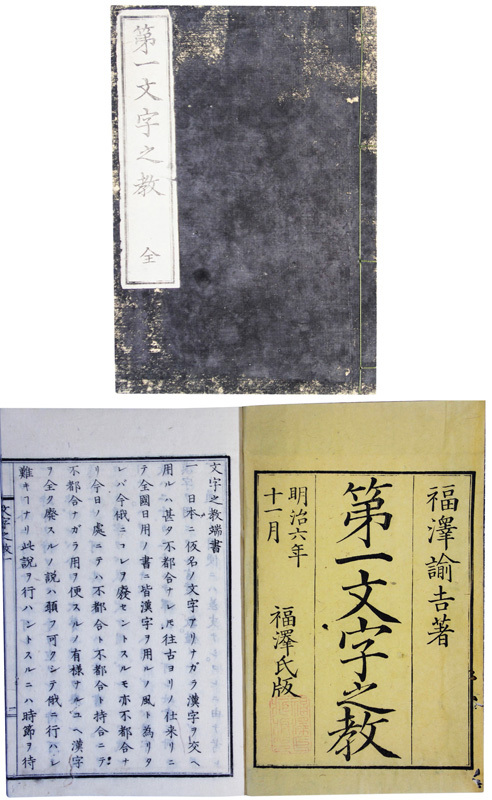 第一文字之教
全
福澤諭𠮷著
第一文字之教
明治六年
十一月
福澤氏版
文字之教端書
一 日本ニ仮名ノ文字アリナガラ漢字ヲ交ヘ
用ルハ甚タ不都合ナレ𪜈往古ヨリノ仕来リニ
テ全國日用ノ書ニ皆漢字ヲ用ルノ風ト為リタ
レバ今俄ニコレヲ廢セントスルモ亦不都合ナ
リ今日ノ處ニテハ不都合ト不都合ト持合ニテ
不都合ナガラ用ヲ便スルノ有様ナルユヘ漢字
ヲ全ク廢スルノ説ハ願フ可クシテ俄ニ行ハレ
難キヿナリ此説ヲ行ハントスルニハ時節ヲ待
文字之教